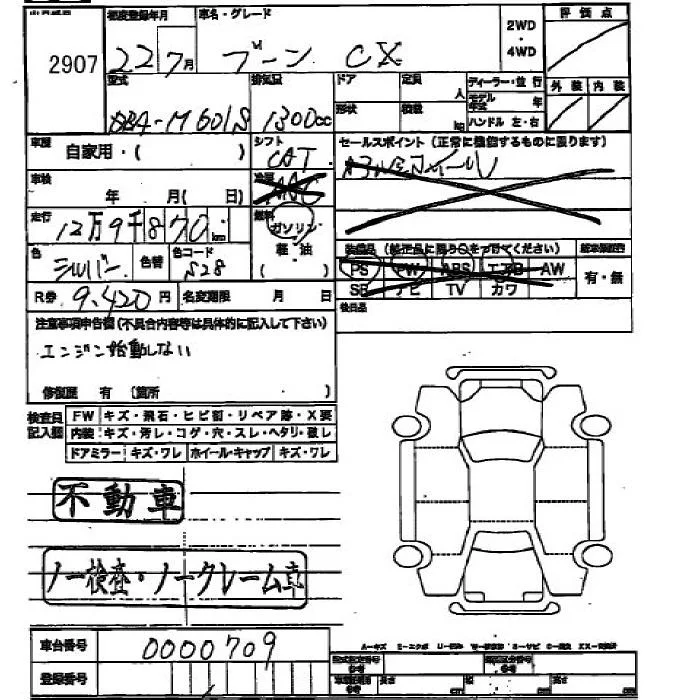 2907
初度登録年月
22 7月
車名・グレード
ブーン CX
2WD
・
4WD
評価点
外装 内装
型式
DBA-M601S
排気量
1300cc
ドア
定員
人
形状
積載
kg
ディーラー・並行
モデル年式 年
ハンドル 左・右
車歴
自家用・( )
シフト
CAT
セールスポイント(正常に機能するものに限ります)
車検
年 月( 日)
冷房
AAC
走行
12万9千870km
燃料
ガソリン
軽・油
( )
装備品(純正品に限り○をつけてください)
PS PW ABS エアB AW
SR ナビ TV カワ
有・無
色
シルバー
色替
色コード
S28
R券 9.420円
名変期限 月 日
後日品
注意事項申告欄(不具合内容等は具体的に記入して下さい)
エンジン始動しない
修復歴 有 (箇所 )
検査員記入欄
FW キズ・飛石・ヒビ割・リペア跡・X要
内装 キズ・汚レ・コゲ・穴・スレ・ヘタリ・破レ
ドアミラー キズ・ワレ ホイール・キャップ キズ・ワレ
不動車
ノー検査・ノークレーム車
車台番号 0000709
登録番号
型式指定番号
参考
類別区分番号
参考
長さ cm 幅 cm 高さ cm